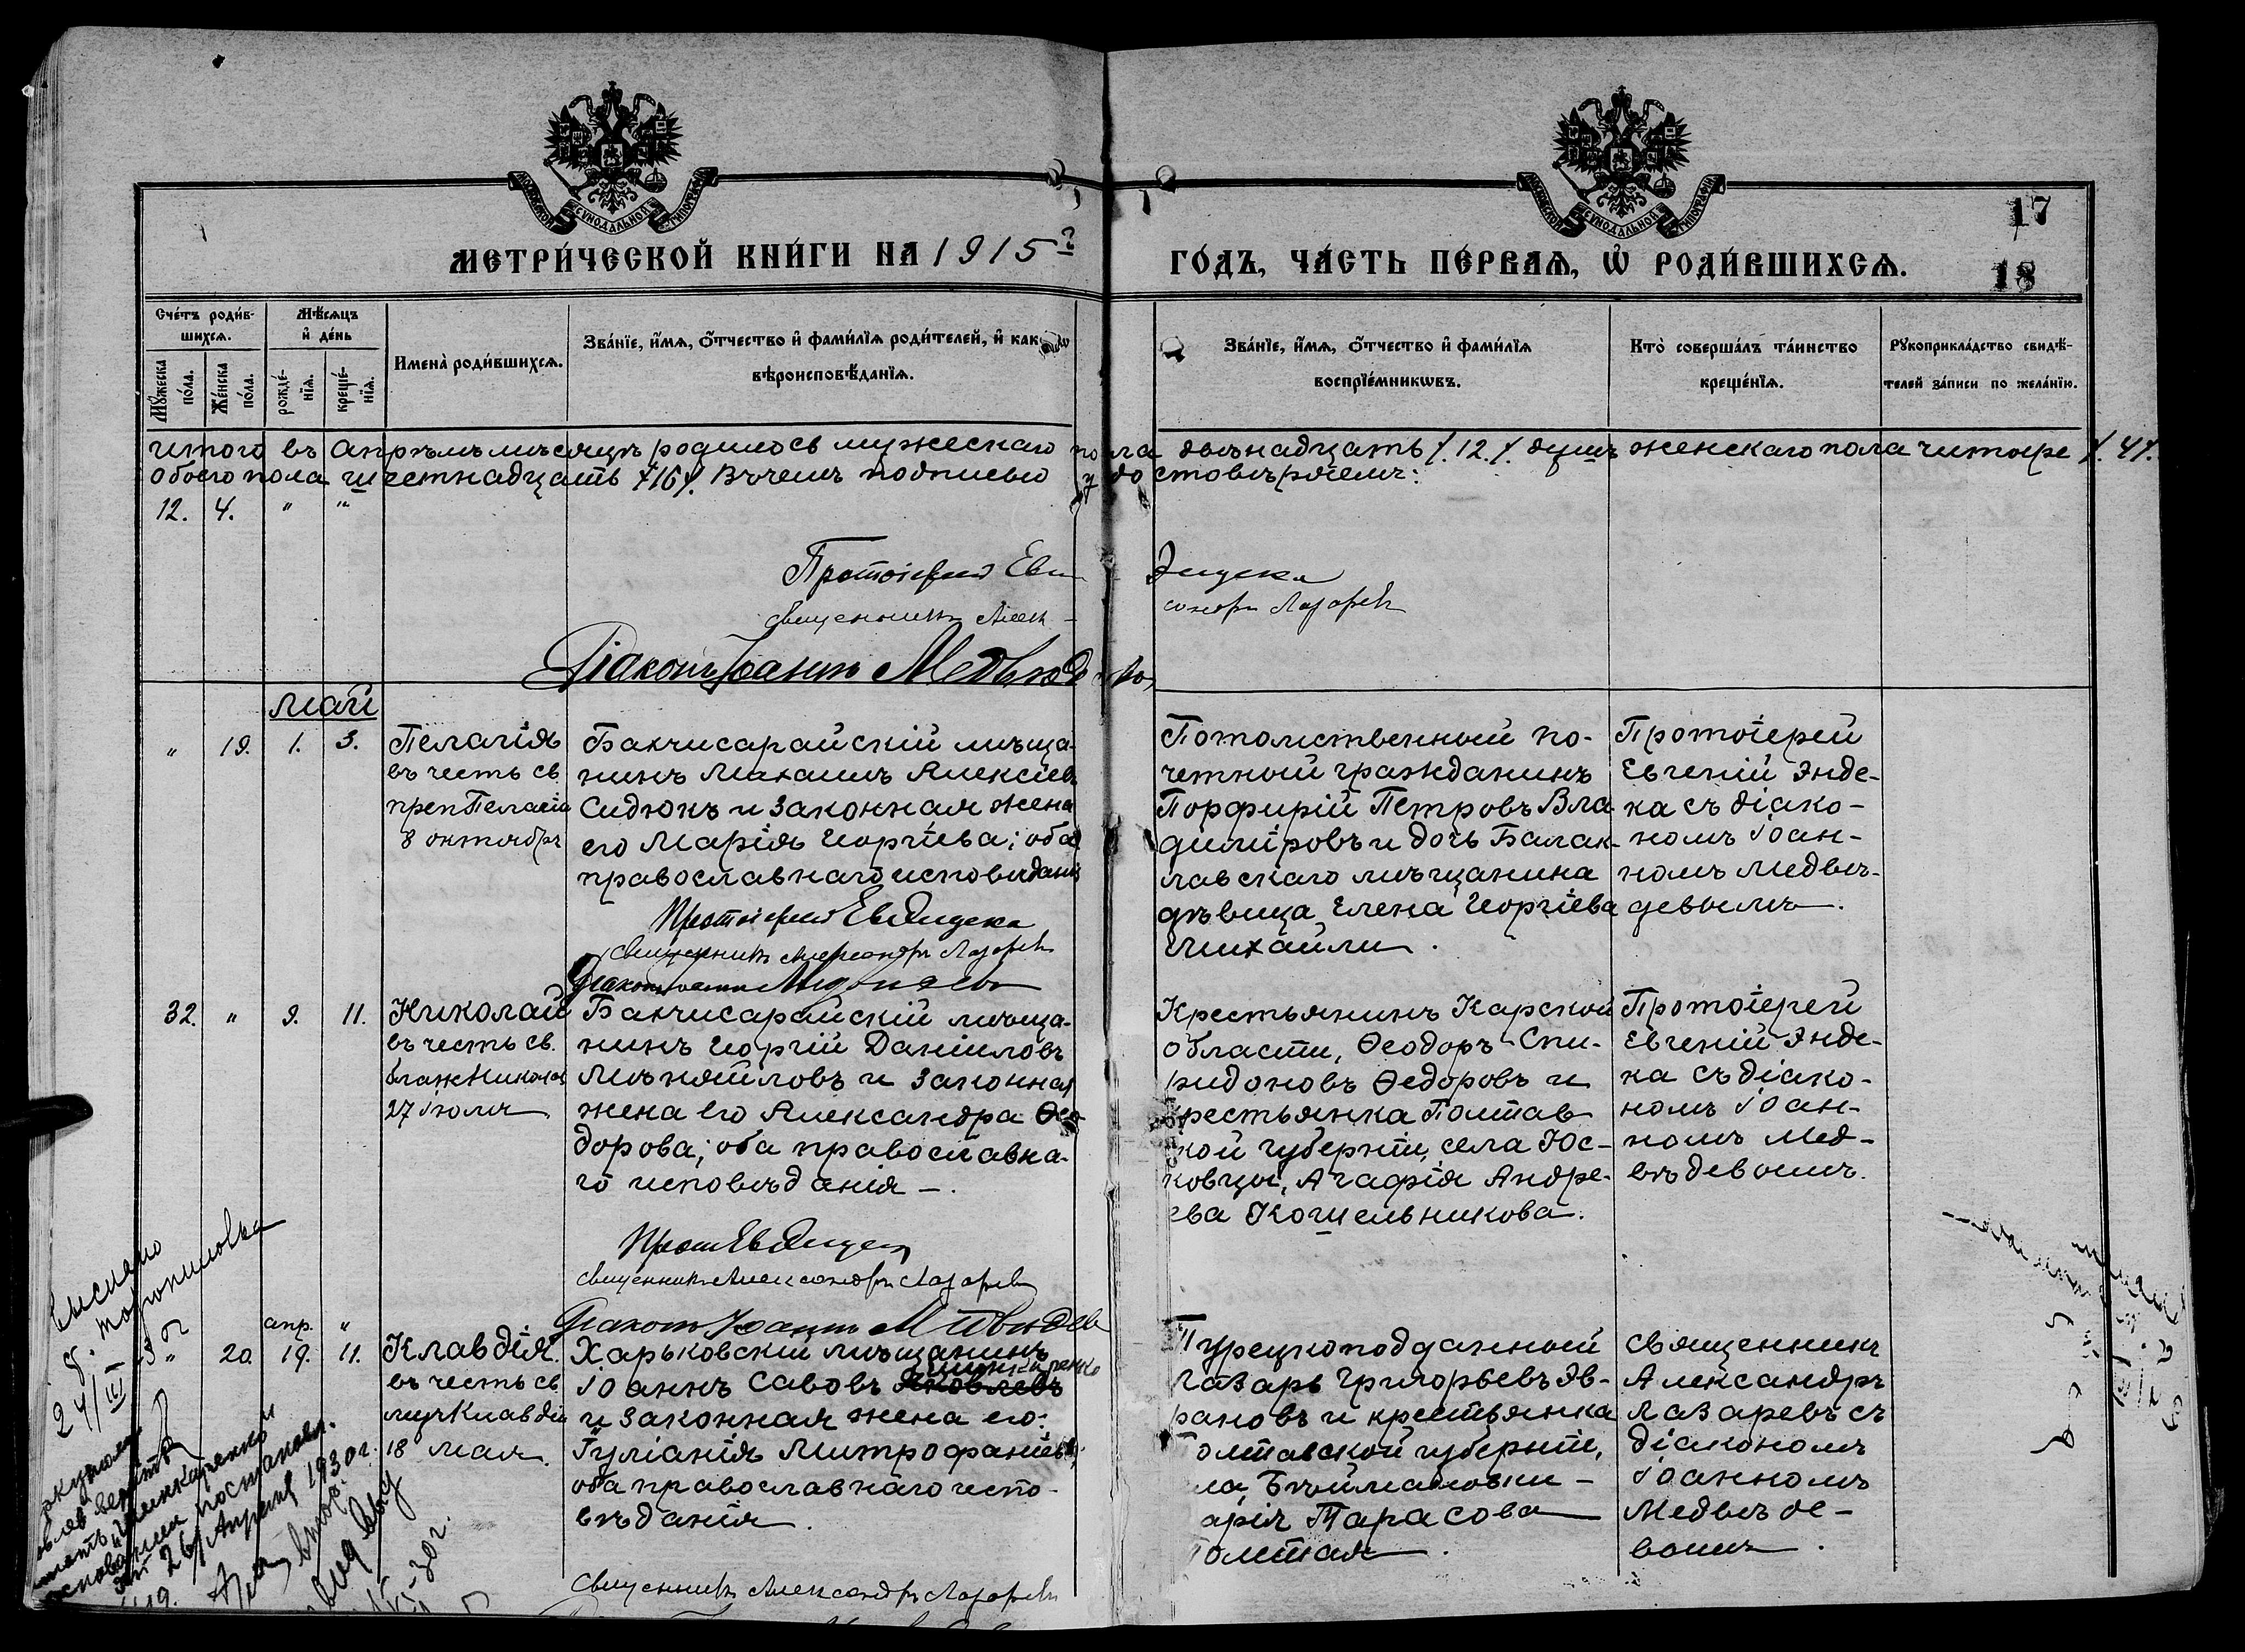 МОСКОВСКОЙ СѴНОДАЛЬНОЙ ТИПОГРАФІИ
МОСКОВСКОЙ СѴНОДАЛЬНОЙ ТИПОГРАФІИ
МЕТРИ́ЧЕСКОЙ КНИ́ГИ НА 1915 г
ГО́ДЪ, ЧА́СТЬ ПЕ́РВАѦ, Ѡ҆ РОДИ́ВШИХСѦ.
17
18
Сче́тъ роди́в-
шихсѧ.
Мѣ́сѧцъ
и҆ де́нь
Мꙋ́жеска
по́ла.
Же́нска
по́ла.
рожде́-
нїѧ.
креще́-
нїѧ.
Имена̀ роди́вшихсѧ.
Зва́нїе, и҆́мѧ, о҆́тчество и҆ фами́лїѧ роди́телей, и҆ как
вѣроисповѣ́данїѧ.
Зва́нїе, и҆́мѧ, о҆́тчество и҆ фами́лїѧ
воспрїе́мникѡвъ.
Кто̀ соверша́лъ та́инство
креще́нїѧ.
Рꙋкоприкла́дство свидѣ́-
телей за́писи по жела́нїю.
Итого въ Апрѣлѣ мѣсяцѣ родилось мужескаго пола двѣнадцать /.12./. душъ женскаго пола читыре /.4/.
обоего пола шестнадцать /16/. Въ чемъ подписью удостовѣряемъ:
12. 4. " "
Протоіерей Ев. Эндека
Священникъ Александръ Лазаревъ
Діаконъ Іоаннъ Медвѣдевъ
Май
" 19. 1. 3.
Пелагія
въ честь св.
преп Пелагіи
8 октября
Бакчисарайскій мѣща-
нинъ Михаилъ Алексіевъ
Сидюкъ и законная жена
его Марія Георгіева; оба
православнаго исповѣданія
Протоіерей Ев Эндека
Священникъ Александръ Лазаревъ
Діаконъ Іоаннъ Медвѣдевъ
Потомственный по-
четный гражданинъ
Порфирій Петровъ Вла-
диміровъ и дочь Балак-
лавскаго мѣщанина
дѣвица Елена Георгіева
Михайли.
Протоіерей
Евгеній Энде-
ка съ діако-
номъ Іоан-
номъ Медвѣ-
девымъ.
32. " 9. 11.
Николай
въ честь св.
блаж Николая
27 Іюля
Бакчисарайскій мѣща-
нинъ Георгій Даніиловъ
и законная
жена его Александра Ѳео-
дорова; оба православна-
го исповѣданія -.
Прот Ев Эндека
Священникъ Александръ Лазаревъ
Діаконъ Іоаннъ Медвѣдевъ
Крестьянинъ Карской
области, Ѳеодоръ Спи-
ридоновъ Ѳедоровъ и
крестьянка Полтав
ской губерніи, села Юс-
ковцы, Агафія Андре-
ева Кошельникова.
Протоіерей
Евгеній Энде-
ка съ діако-
номъ Іоан-
номъ Мед-
вѣдевымъ.
апр. "
" 20. 19. 11.
Клавдія
въ честь св
муч Клавдіи
18 мая.
Харьковскій мѣщанинъ
Шинкаренко
Іоаннъ Савовъ Яковлевъ
и законная жена его
Іуліанія Митрофаніева,
оба православнаго испо-
вѣданія.
Священникъ Александръ Лазаревъ
Турецкоподданный
Лазарь Григорьевъ Эв-
рановъ и крестьянка
Полтавской губерніи,
ла Бѣймаковки -
арія Тарасова
Толстая.
Священникъ
Александръ
Лазаревъ съ
діакономъ
Іоанномъ
Медвѣде-
вымъ.
выслано
24/III
Шинкаренко
основании постановл.
26 Апреля 1930 г.